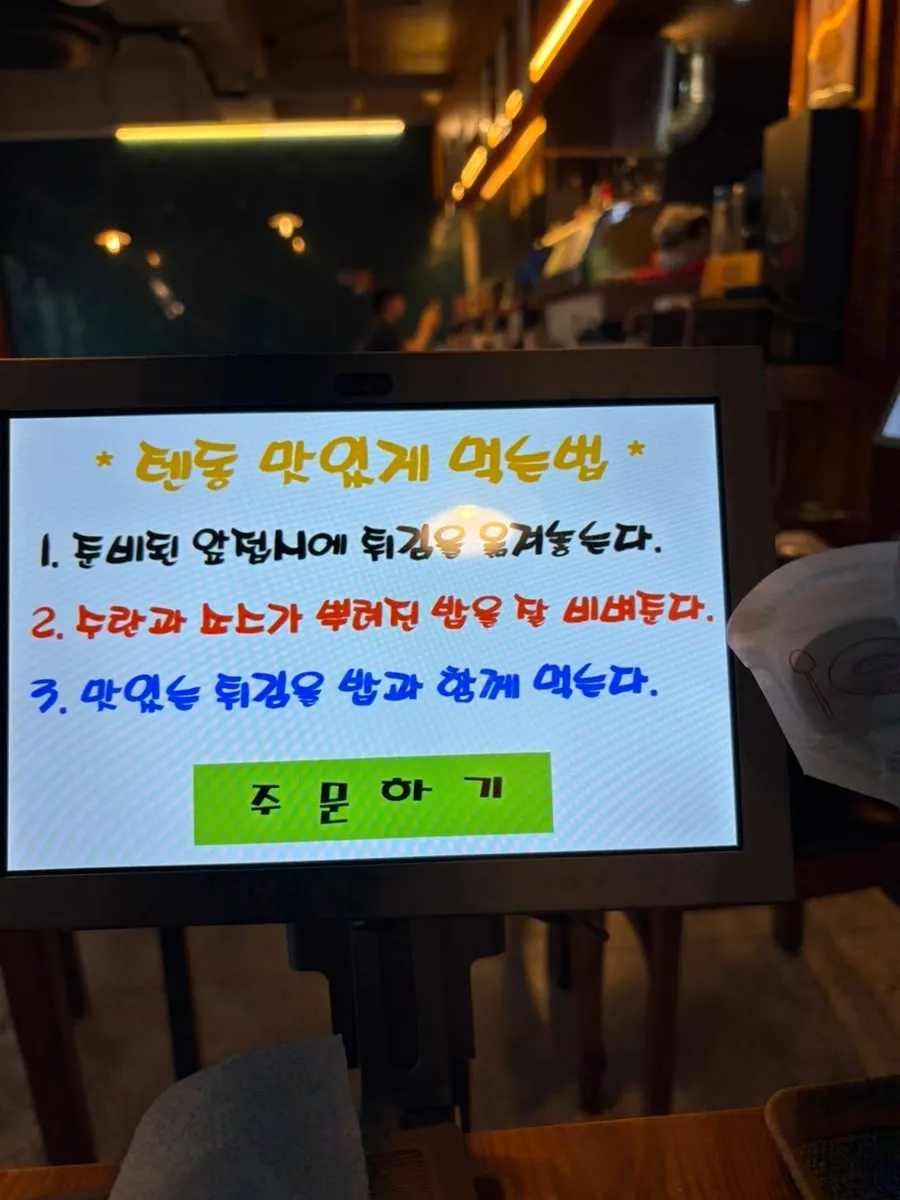 * 텐동 맛있게 먹는법 *
1. 준비된 앞접시에 튀김을 옮겨놓는다.
2. 수란과 소스가 뿌려진 밥을 잘 비벼둔다.
3. 맛있는 튀김을 밥과 함께 먹는다.
주문하기